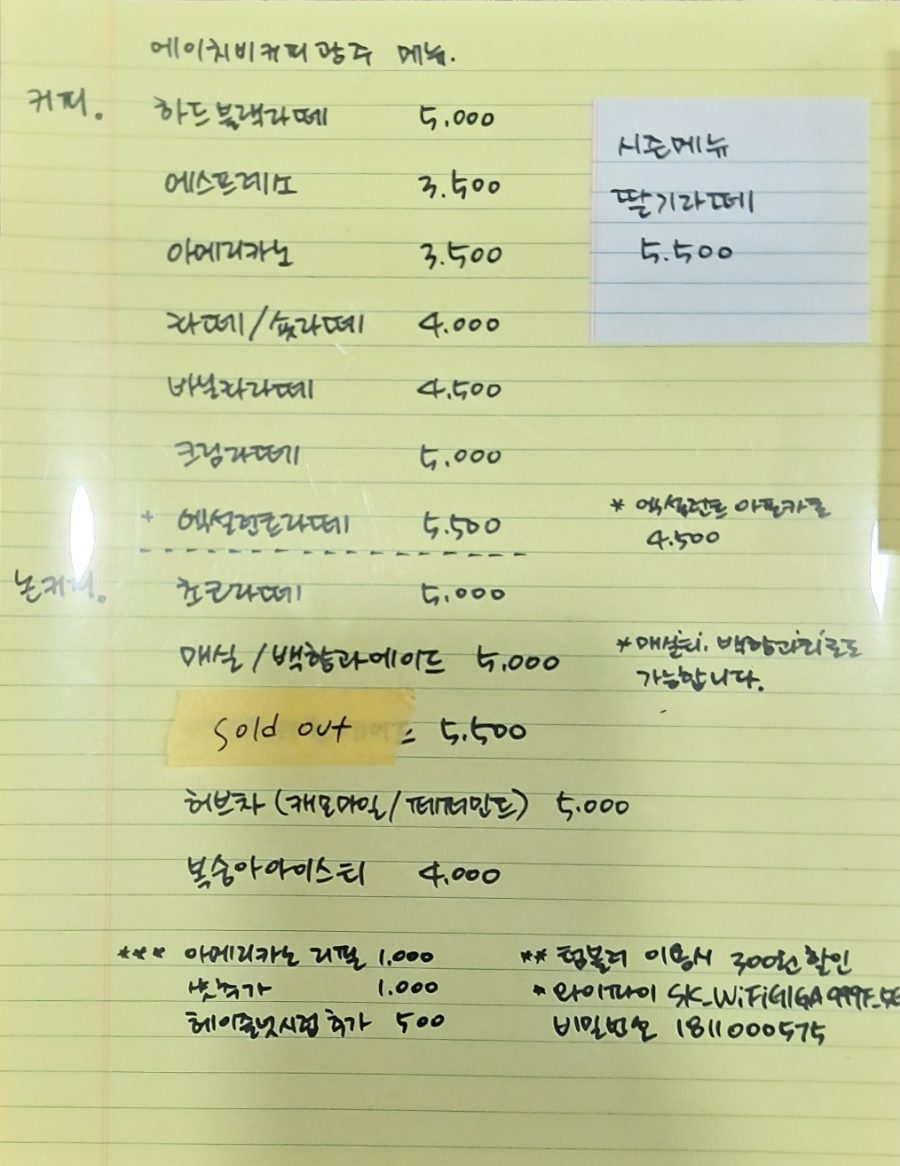 에이치비커피 광주 메뉴.
커피.
하드블랙라떼 5,000
에스프레소 3.500
아메리카노 3.500
라떼/숏라떼 4.000
바닐라라떼 4.500
크림라떼 5.000
+ 엑설런트라떼 5.500
* 엑설런트 아포카토
4.500
시즌메뉴
딸기라떼
5.500
논커피.
초코라떼 5.000
매실/백향과에이드 5,000
* 매실티, 백향과티로도
가능합니다.
Sold out 5.500
허브차 (캐모마일/페퍼민트) 5.000
복숭아아이스티 4.000
*** 아메리카노 리필 1.000
샷추가 1.000
헤이즐넛시럽 추가 500
** 텀블러 이용시 300원 할인
* 와이파이 SK_WiFiGIGA999F_5G
비밀번호 1811000575